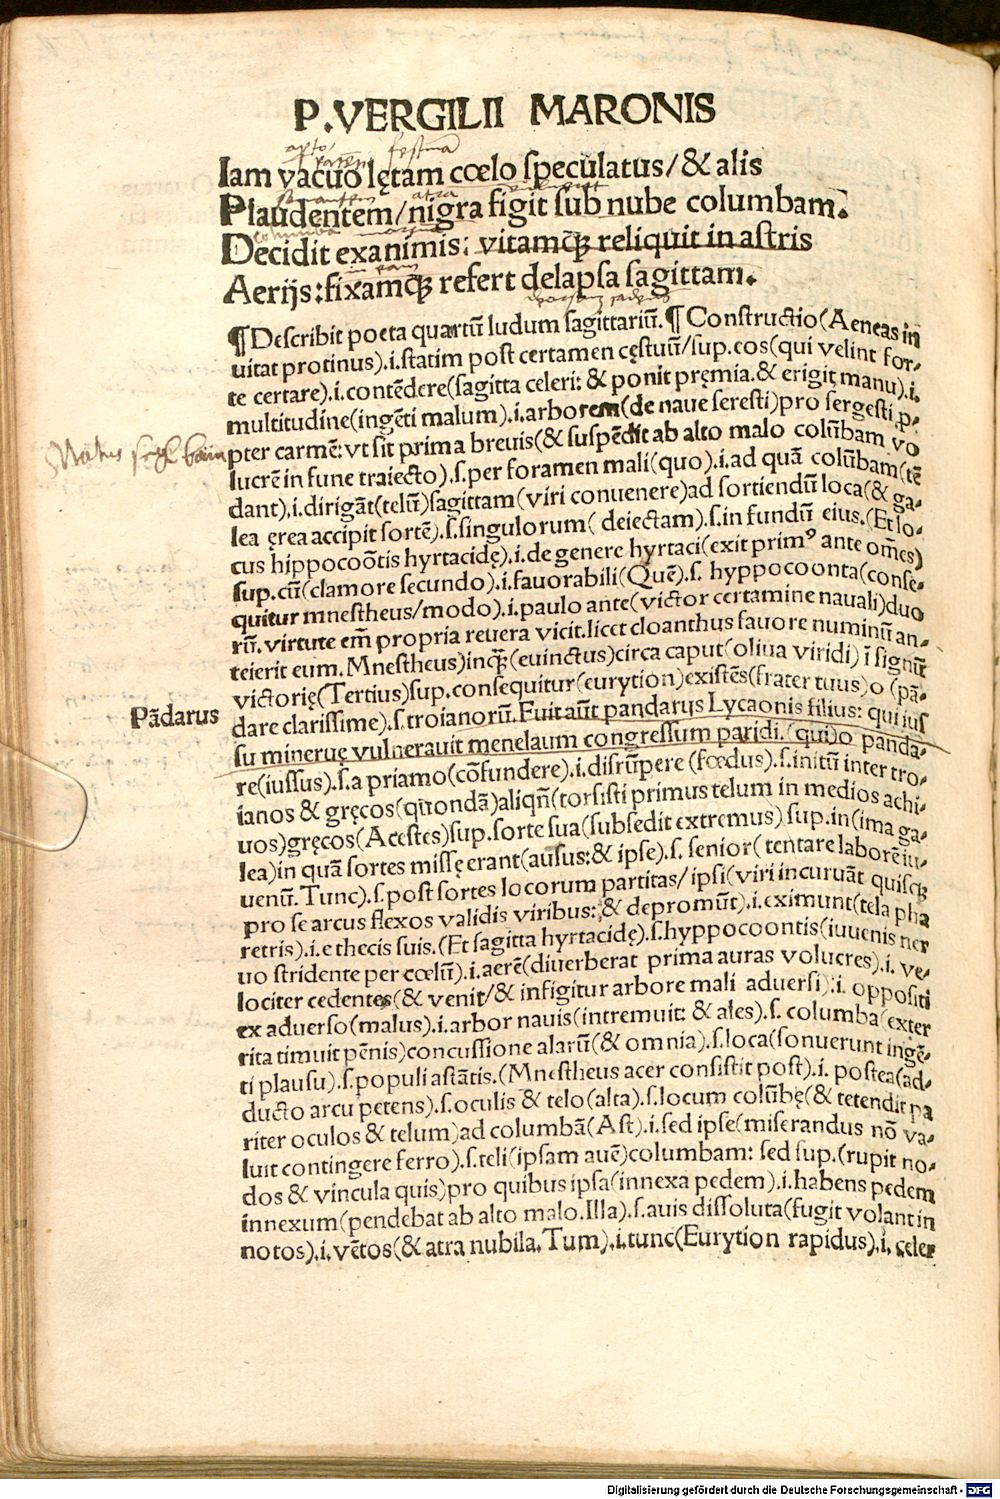 P.VERGILII MARONIS
Iam vacuo lętam cœlo speculatus/& alis
Plaudentem/nigra figit sub nube columbam.
Decidit exanimis: vitamq̃ reliquit in astris
Aerijs:fixamq̃ refert delapsa sagittam.
¶Describit poeta quartũ ludum sagittariũ.¶Constructio(Aeneas in
uitat protinus).i.statim post certamen cęstuũ/sup.eos(qui velint for-
te certare).i.contẽdere(sagitta celeri: & ponit pręmia.& erigit manu).i.
multitudine(ingẽti malum).i.arborem(de naue seresti)pro sergesti ꝓ-
pter carmẽ:vt sit prima breuis(& suspẽdit ab alto malo colũbam vo
lucrẽ in fune traiecto).s.per foramen mali(quo).i.ad quã colũbam(tẽ
dant).i.dirigãt(telũ)sagittam(viri conuenere)ad sortiendũ loca(& ga-
lea ęrea accipit sortẽ).s.singulorum( deiectam).s.in fundũ eius.(Et lo-
cus hippocoõtis hyrtacidę).i.de genere hyrtaci(exit primꝰ ante om̃es)
sup.cũ(clamore secundo).i.fauorabili(Quẽ).s. hyppocoonta(conse-
quitur mnestheus/modo).i.paulo ante(victor certamine nauali)duo
rũ. virtute em̃ propria reuera vicit.licet cloanthus fauore numinũ an-
teierit eum. Mnestheus)inq̃(euinctus)circa caput(oliua viridi) ĩ signũ
victorię(Tertius)sup.consequitur(eurytion)existẽs(frater tuus)o (pã-
Pãdarus
dare clarissime).s.troianorũ.Fuit aũt pandarus Lycaonis filius: qui ius
su mineruę vulnerauit menelaum congressum paridi.(qui)o panda-
re(iussus).s.a priamo(cõfundere).i.disrũpere (fœdus).s.initũ inter tro-
ianos & gręcos(quondã)aliqñ(torsisti primus telum in medios achi-
uos)gręcos(Acestes)sup.sorte sua(subsedit extremus) sup.in(ima ga-
lea)in quã sortes missę erant(ausus:& ipse).s. senior( tentare laborẽ iu-
uenũ. Tunc).s.post sortes locorum partitas/ ipsi(viri incuruãt quisq̃
pro se arcus flexos validis viribus: & depromũt).i.eximunt(tela pha
retris).i.e thecis suis.(Et sagitta hyrtacidę).s.hyppocoontis(iuuenis ner
uo stridente per cœlũ).i.aerẽ(diuerberat prima auras volucres).i. ve-
lociter cedentes(& venit/& infigitur arbore mali aduersi).i. oppositi
ex aduerso(malus).i.arbor nauis(intremuit: & ales).s. columba(exter
rita timuit pẽnis)concussione alarũ(& omnia).s.loca(sonuerunt ingẽ-
ti plausu).s.populi astãtis.(Mnestheus acer consistit post).i. postea(ad-
ducto arcu petens).s.oculis & telo(alta).s.locum colũbę(& tetendit pa
riter oculos & telum)ad columbã(Ast).i.sed ipse(miserandus nõ va-
luit contingere ferro).s.teli(ipsam auẽ)columbam: sed sup.(rupit no-
dos & vincula quis)pro quibus ipsa(innexa pedem).i.habens pedem
innexum(pendebat ab alto malo.Illa).s.auis dissoluta(fugit volant in
notos).i.vẽtos(& atra nubila. Tum).i.tunc(Eurytion rapidus).i. celer
Digitalisierung gefördert durch die Deutsche Forschungsgemeinschaft - DFG